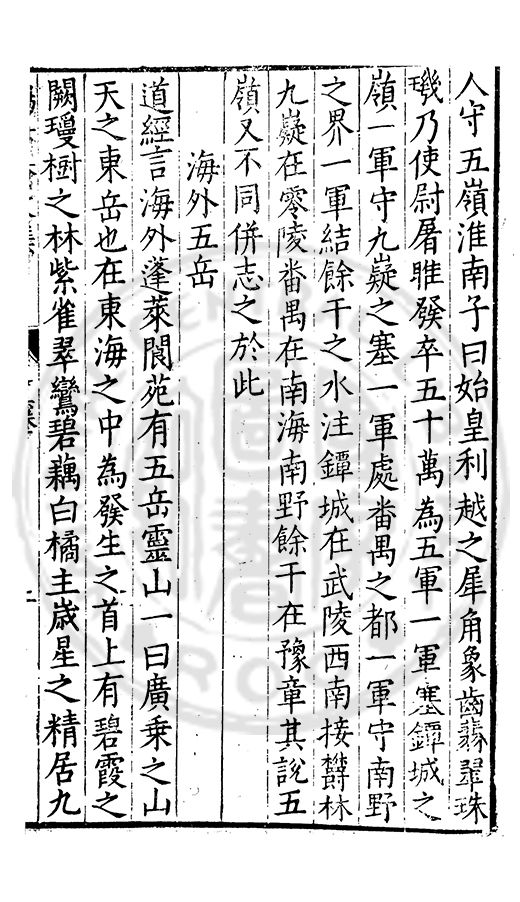 人守五嶺淮南子曰始皇利越之犀角象齒翡翠珠
璣乃使尉屠睢發卒五十萬為五軍一軍塞鐔城之
嶺一軍守九嶷之塞一軍處番禺之都一軍守南野
之界一軍結餘干之水注鐔城在武陵西南接鬱林
九嶷在零陵番禺在南海南野餘干在豫章其說五
嶺又不同併志之於此
海外五岳
道經言海外蓬萊閬苑有五岳靈山一曰廣乘之山
天之東岳也在東海之中為發生之首上有碧霞之
闕瓊樹之林紫雀翠鸞碧藕白橘主歲星之精居九